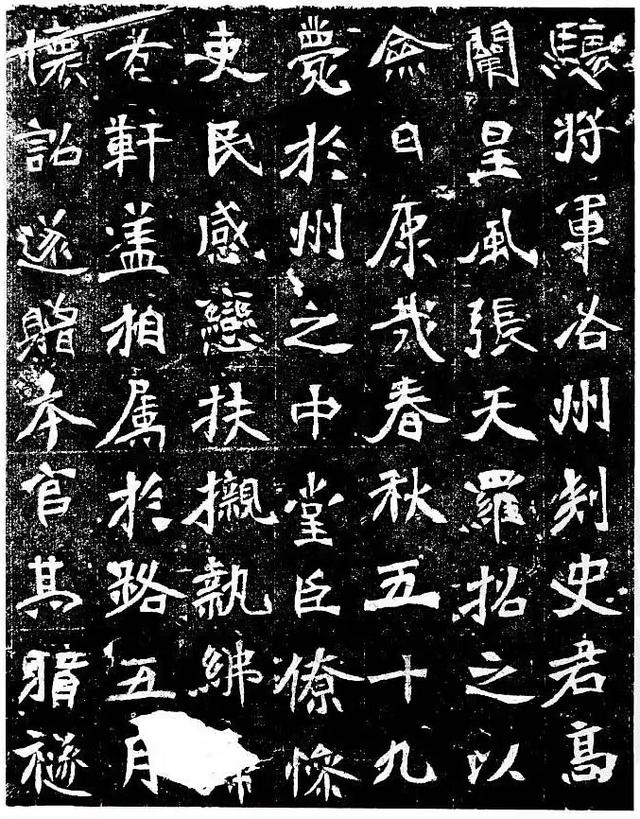 驤將軍谷州刾史君高
闡皇風張天羅招之以
僉曰康哉春秋五十九
薨於州之中堂臣僚慘
吏民感戀扶櫬執紼
者軒蓋相属於路五月
懷詔遂贈本官其襚